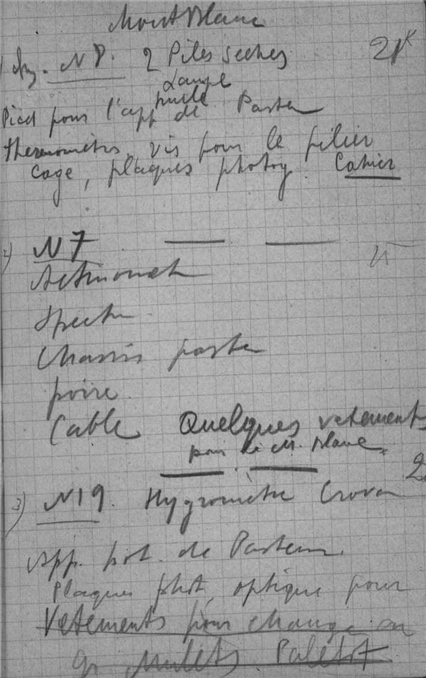 Mont Blanc
N 8. 2 Piles seches 21 k
Lampe
pile
Pied pour l'app de Pasteu
thermomètres, vis pour le pilier
cage, plaques photog Cahier
2) N 7
Actinomet
Spectr
Chassis paste
poire
Cable Quelques vetements
pour le M. Blanc
3) N 19. Hygromètre Crova 2
App. pot. de Pasteur
Plaques phot, optique pour
Vetements pour change au
gr mulets. Paletot